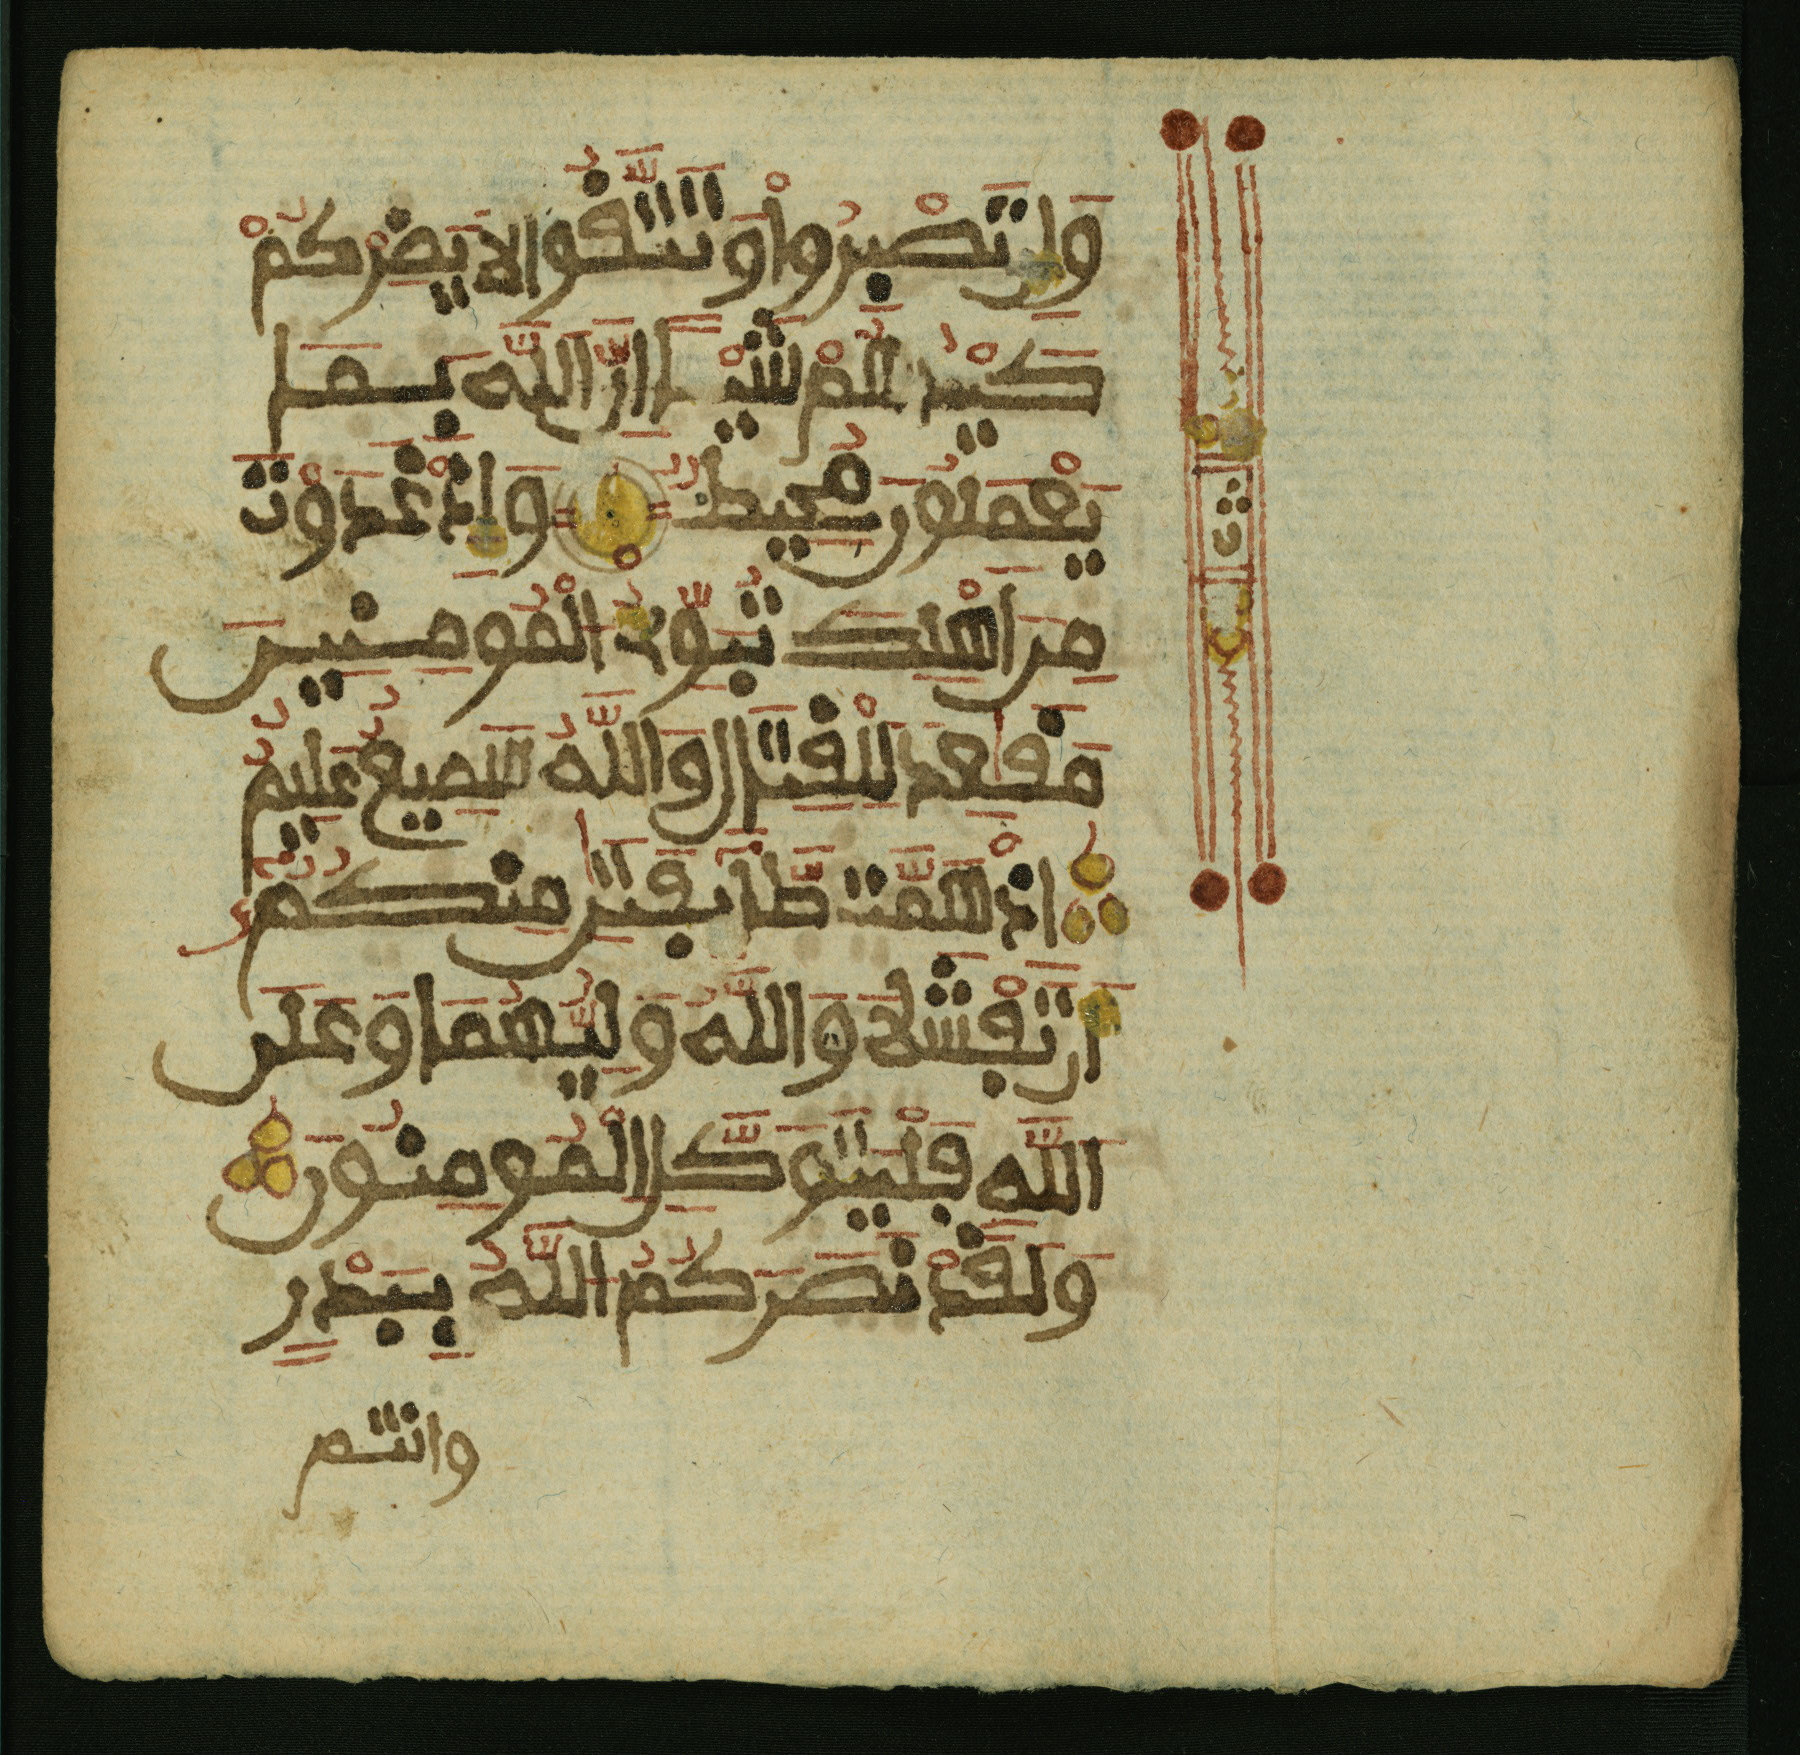 وَإِن تَصْبِرُوا۟ وَتَتَّقُوا لَا يَضِرْكُمْ
كَيْدُهُمْ شَيْـًٔا اِنَّ اَللَّهَ بِمَا
يَعْمَلُونَ مُحِيطٌ وَإِذْ غَدَوْتَ
مِنَ اَهْلِكَ تُبَوِّئُ اُلْمُومِنِينَ
مَقَٰعِدَ لِلْقِتَالِ وَاللَّهُ سَمِيعٌ عَلِيمٌ
اِذْ هَمَّت طَّآئِفَتَٰنِ مِنكُمُ
أَن تَفْشَلَا وَاللَّهُ وَلِيُّهُمَا وَعَلَى
اَللَّهِ فَلْيَتَوَكَّلِ اِلْمُومِنُونَ
وَلَقَدْ نَصَرَكُمُ اُللَّهُ بِبَدْرٍ
وانتم
ث